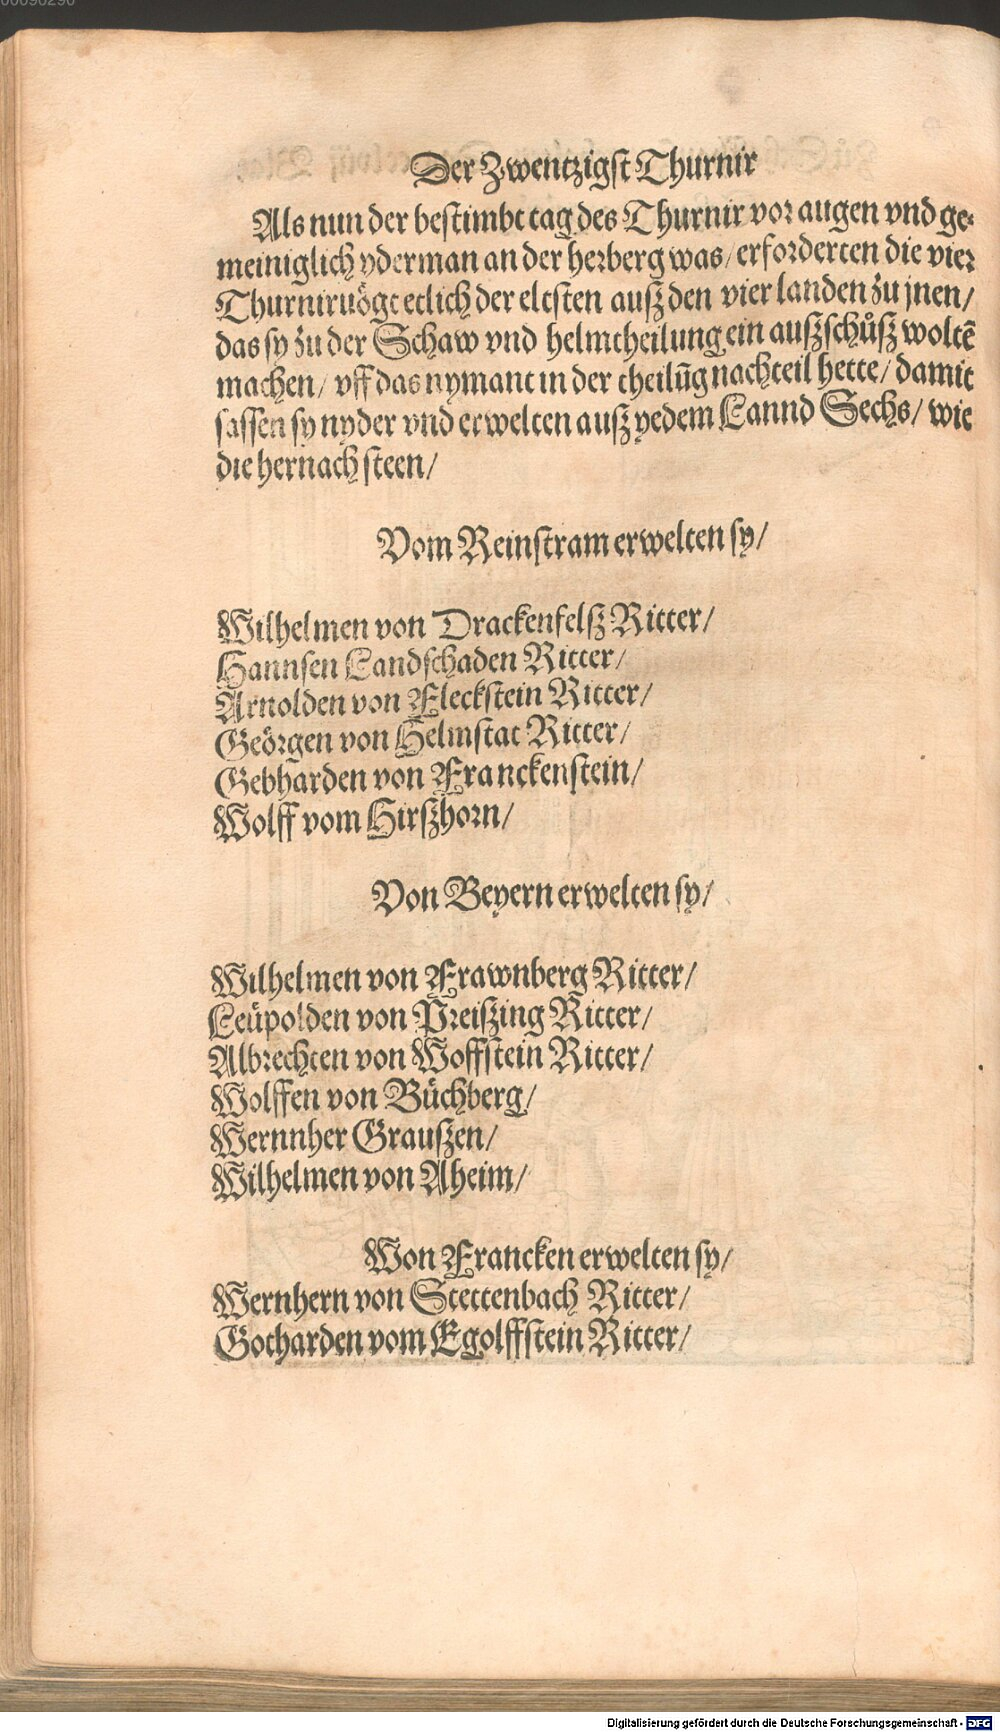 00090290
Der Zwentzigst Thurnir
Als nun der bestimbt tag des Thurnir vor augen vnd ge-
meiniglich yderman an der herberg was / erforderten die vier
Thurniruögt etlich der eltsten ausz den vier landen zu jnen /
das sy zu der Schaw vnd helmtheilung ein auszschůsz woltē
machen / vff das nymant in der theilūg nachteil hette / damit
sassen sy nyder vnd erwelten ausz yedem Lannd Sechs / wie
die hernach steen /
Vom Reinstram erwelten sy /
Wilhelmen von Drackenfelsz Ritter /
Hannsen Landschaden Ritter /
Arnolden von Fleckstein Ritter /
Geörgen von Helmstat Ritter /
Gebharden von Franckenstein /
Wolff vom Hirszhorn /
Von Beyern erwelten sy /
Wilhelmen von Frawnberg Ritter /
Leüpolden von Preiszing Ritter /
Albrechten von Woffstein Ritter /
Wolffen von Büchberg /
Wernnher Grauszen /
Wilhelmen von Aheim /
Won Francken erwelten sy /
Wernhern von Stettenbach Ritter /
Gotharden vom Egolffstein Ritter /
Digitalisierung gefördert durch die Deutsche Forschungsgemeinschaft - DFG